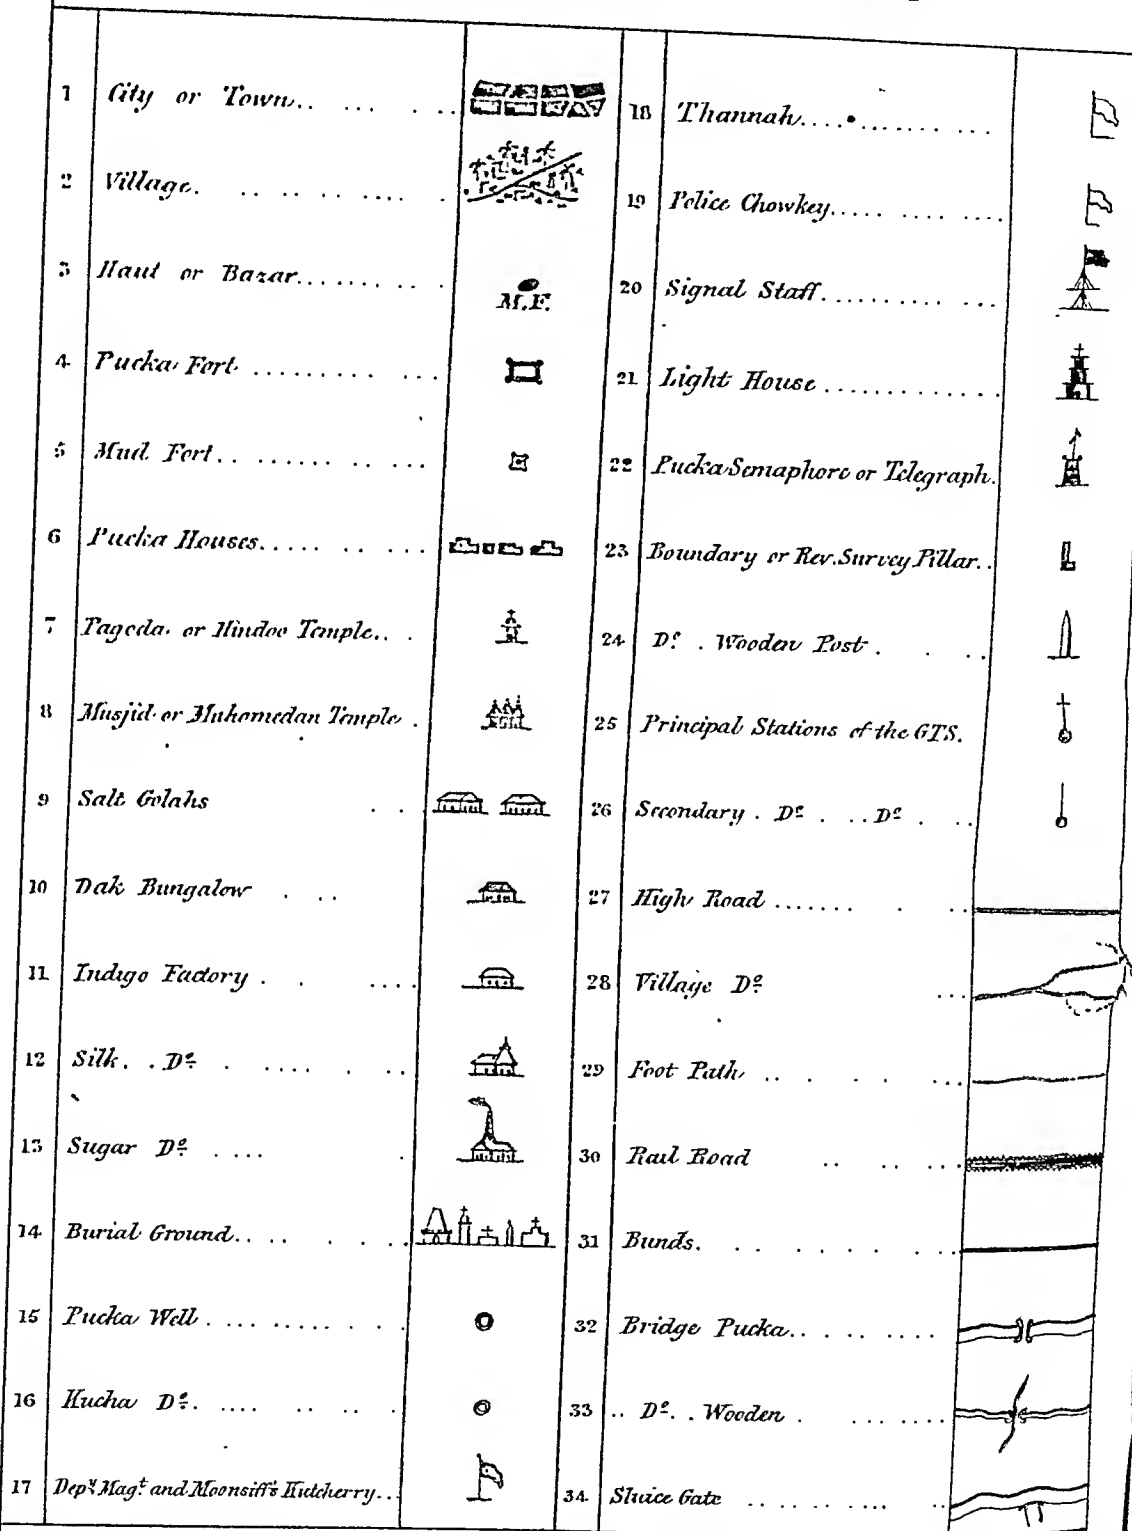 1 City or Town
2 Village
3 Haut or Bazar
M.F.
4 Pucka Fort
5 Mud Fort
6 Pucka Houses
7 Pagoda or Hindoo Temple
8 Musjid or Muhomedan Temple
9 Salt Golahs
10 Dak Bungalow
11 Indigo Factory
12 Silk Dº
13 Sugar Dº
14 Burial Ground
15 Pucka Well
16 Kucha Dº
17 Depy. Magt. and Moonsiff's Kutcherry
18 Thannah
19 Police Chowkey
20 Signal Staff
21 Light House
22 Pucka Semaphore or Telegraph
23 Boundary or Rev. Survey Pillar
24 Dº Wooden Post
25 Principal Stations of the GTS.
26 Secondary Dº Dº
27 High Road
28 Village Dº
29 Foot Path
30 Rail Road
31 Bunds
32 Bridge Pucka
33 Dº Wooden
34 Sluice Gate